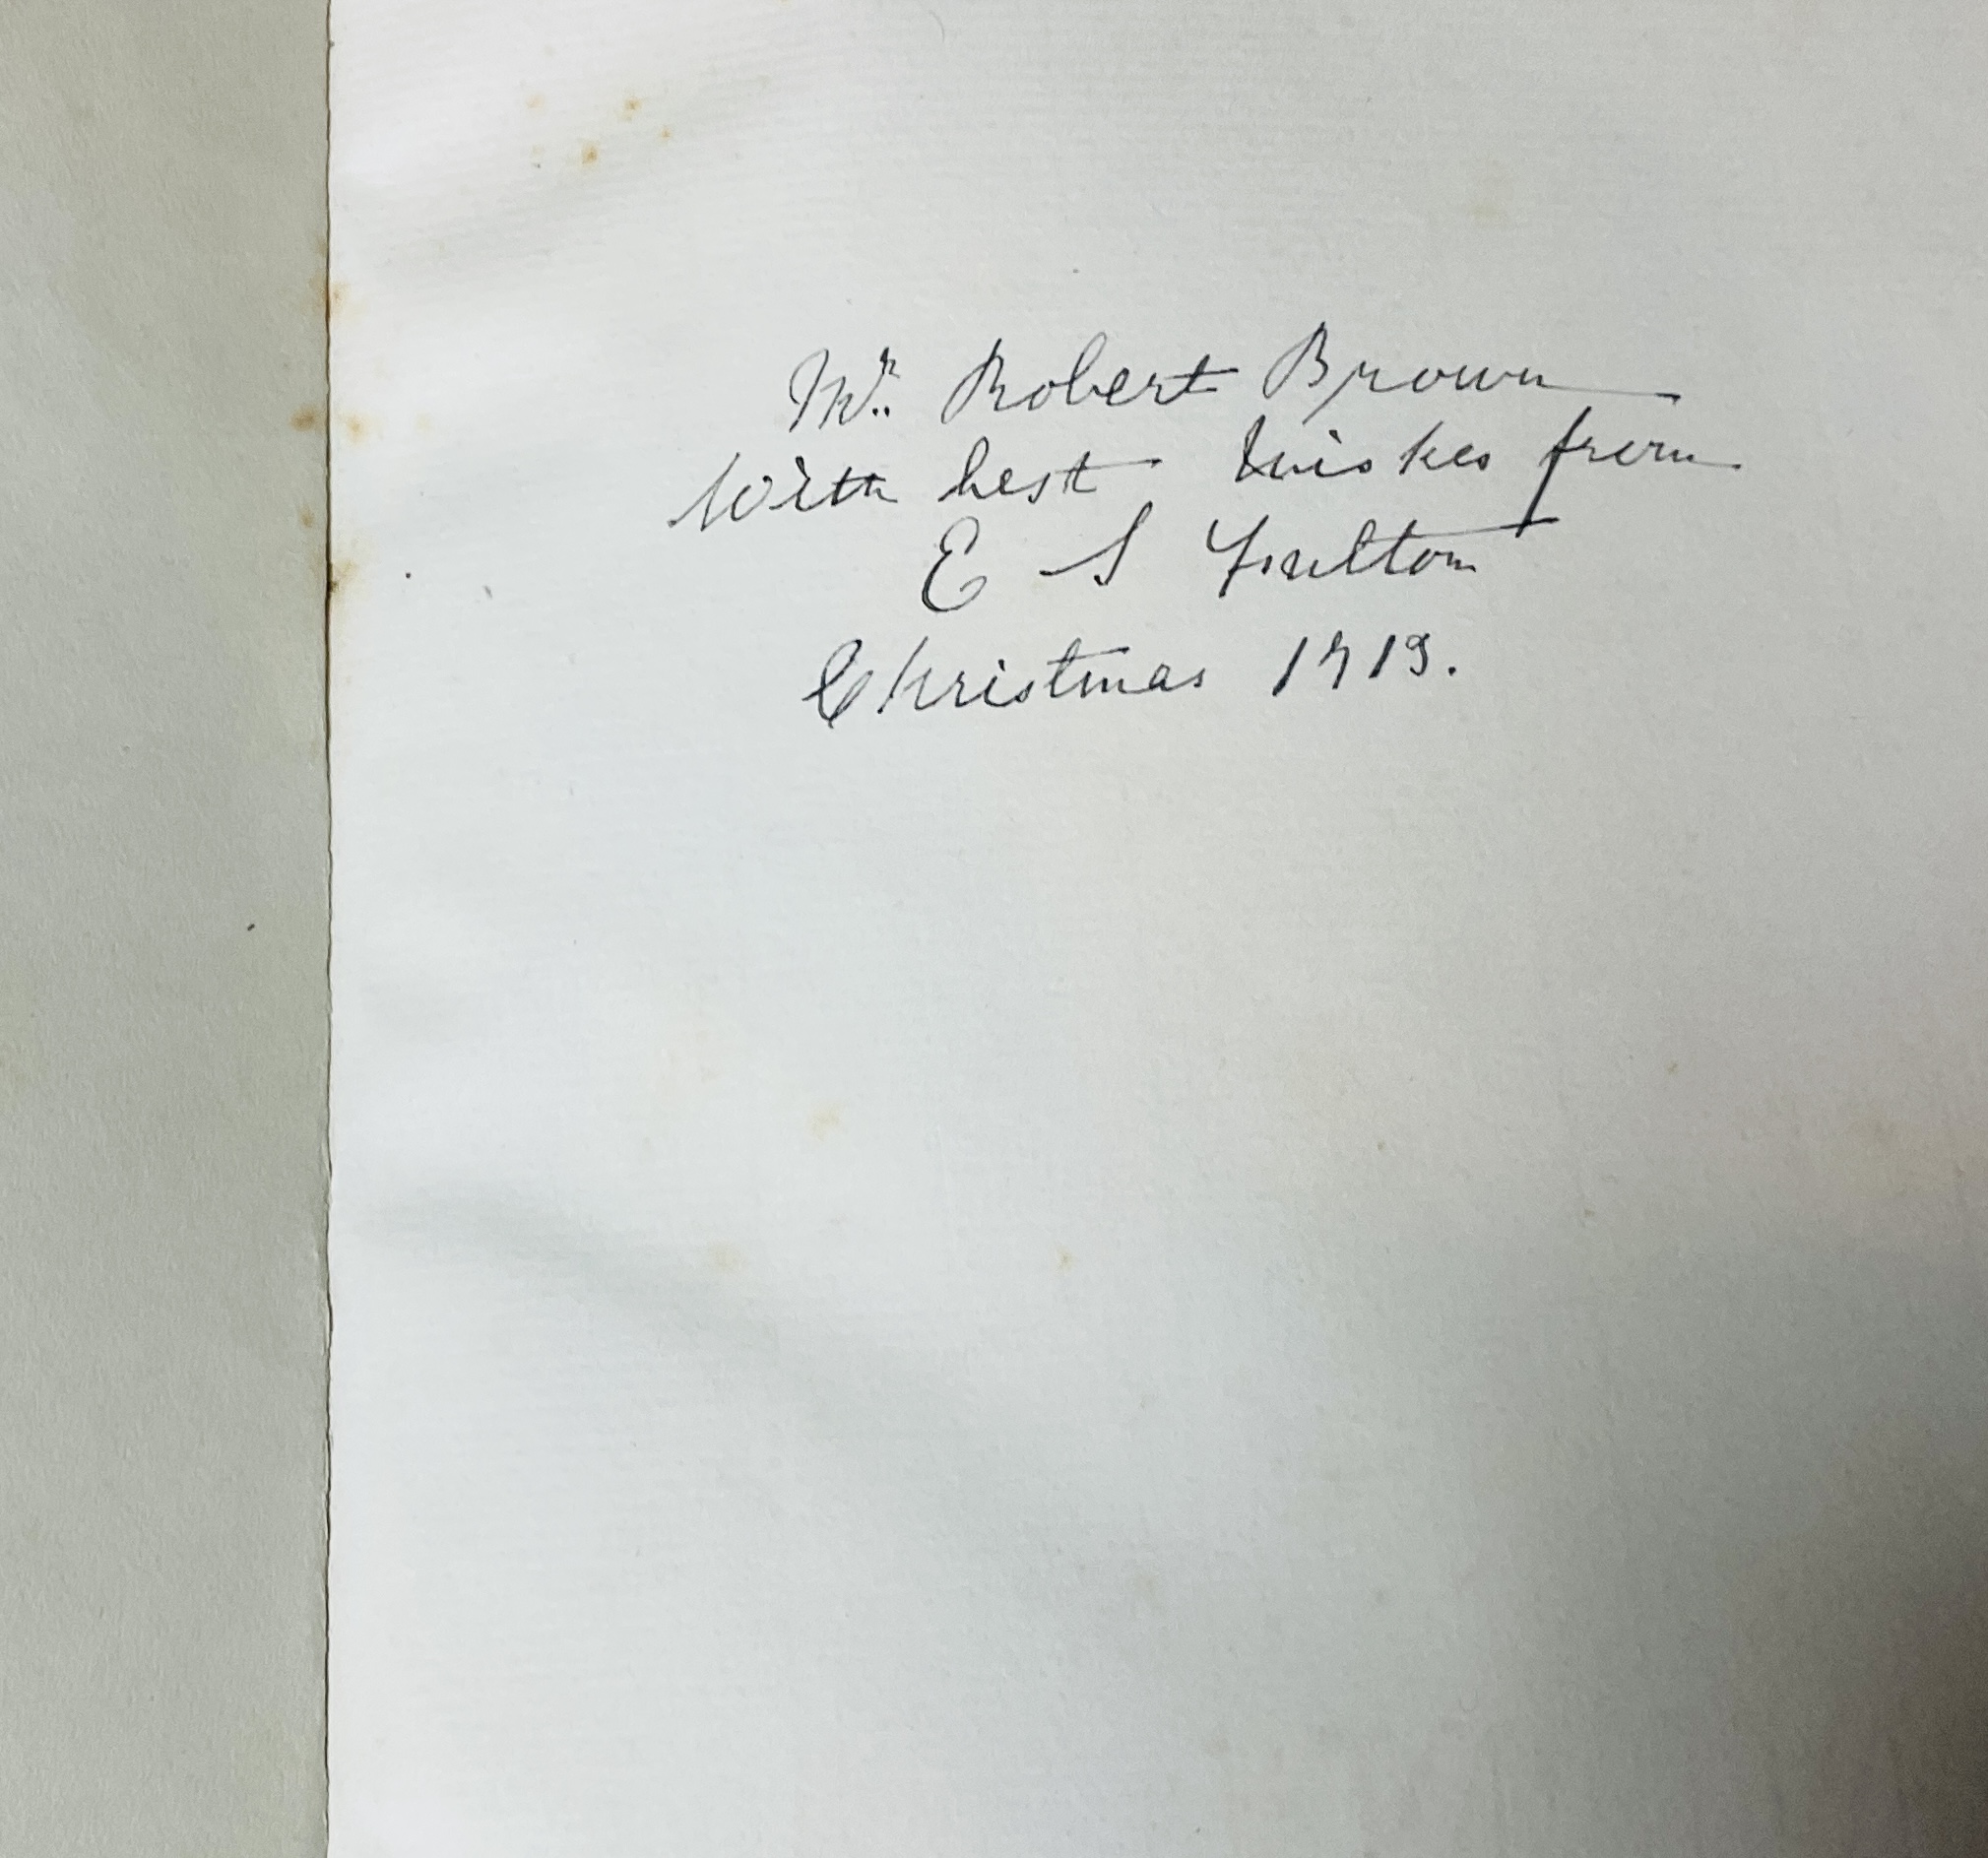 Mr. Robert Brown
With best wishes from
E S Fulton
Christmas 1913.